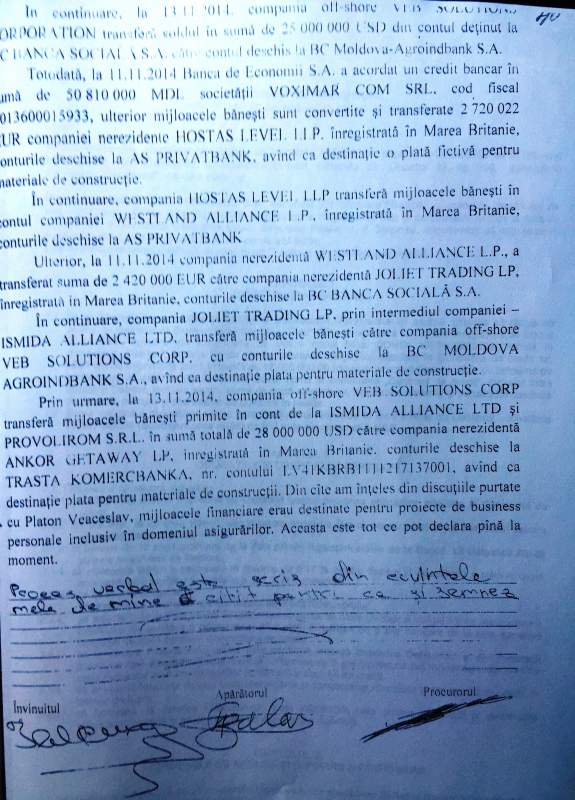 40
În continuare, la 13.11.2014, compania off-shore VEB SOLUTIONS
ORPORATION transferă soldul în sumă de 25 000 000 USD din contul deținut la
C BANCA SOCIALĂ S.A. către contul deschis la BC Moldova-Agroindbank S.A.
Totodată, la 11.11.2014 Banca de Economii S.A. a acordat un credit bancar în
umă de 50 810 000 MDL societății VOXIMAR COM SRL, cod fiscal
013600015933, ulterior mijloacele bănești sunt convertite și transferate 2 720 022
UR companiei nerezidente HOSTAS LEVEL LLP, înregistrată în Marea Britanie,
conturile deschise la AS PRIVATBANK, avînd ca destinație o plată fictivă pentru
materiale de construcție.
În continuare, compania HOSTAS LEVEL LLP transferă mijloacele bănești în
contul companiei WESTLAND ALLIANCE L.P., înregistrată în Marea Britanie,
conturile deschise la AS PRIVATBANK
Ulterior, la 11.11.2014 compania nerezidentă WESTLAND ALLIANCE L.P., a
transferat suma de 2 420 000 EUR către compania nerezidentă JOLIET TRADING LP,
înregistrată in Marea Britanie, conturile deschise la BC BANCA SOCIALĂ S.A.
În continuare, compania JOLIET TRADING LP, prin intermediul companiei –
ISMIDA ALLIANCE LTD, transferă mijloacele bănești către compania off-shore
VEB SOLUTIONS CORP, cu conturile deschise la BC MOLDOVA
AGROINDBANK S.A., avînd ca destinație plata pentru materiale de construcție.
Prin urmare, la 13.11.2014, compania off-shore VEB SOLUTIONS CORP
transferă mijloacele bănești primite în cont de la ISMIDA ALLIANCE LTD și
PROVOLIROM S.R.L. în sumă totală de 28 000 000 USD către compania nerezidentă
ANKOR GETAWAY LP, inregistrată în Marea Britanie, conturile deschise la
TRASTA KOMERCBANKA, nr. contului LV41KBRB1111217137001, avînd ca
destinație plata pentru materiale de construcții. Din cîte am înțeles din discuțiile purtate
cu Platon Veaceslav, mijloacele financiare erau destinate pentru proiecte de business
personale inclusiv în domeniul asigurărilor. Aceasta este tot ce pot declara pînă la
moment.
Proces verbal este scris din cuvintele
mele de mine citit pentru ce și semnez
Învinuitul Apărătorul Procurorul